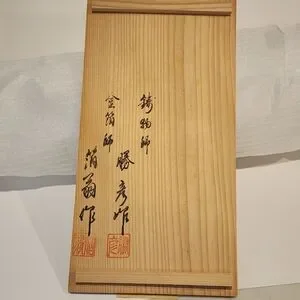 鋳物師
勝彦作
金箔師
箔翁作